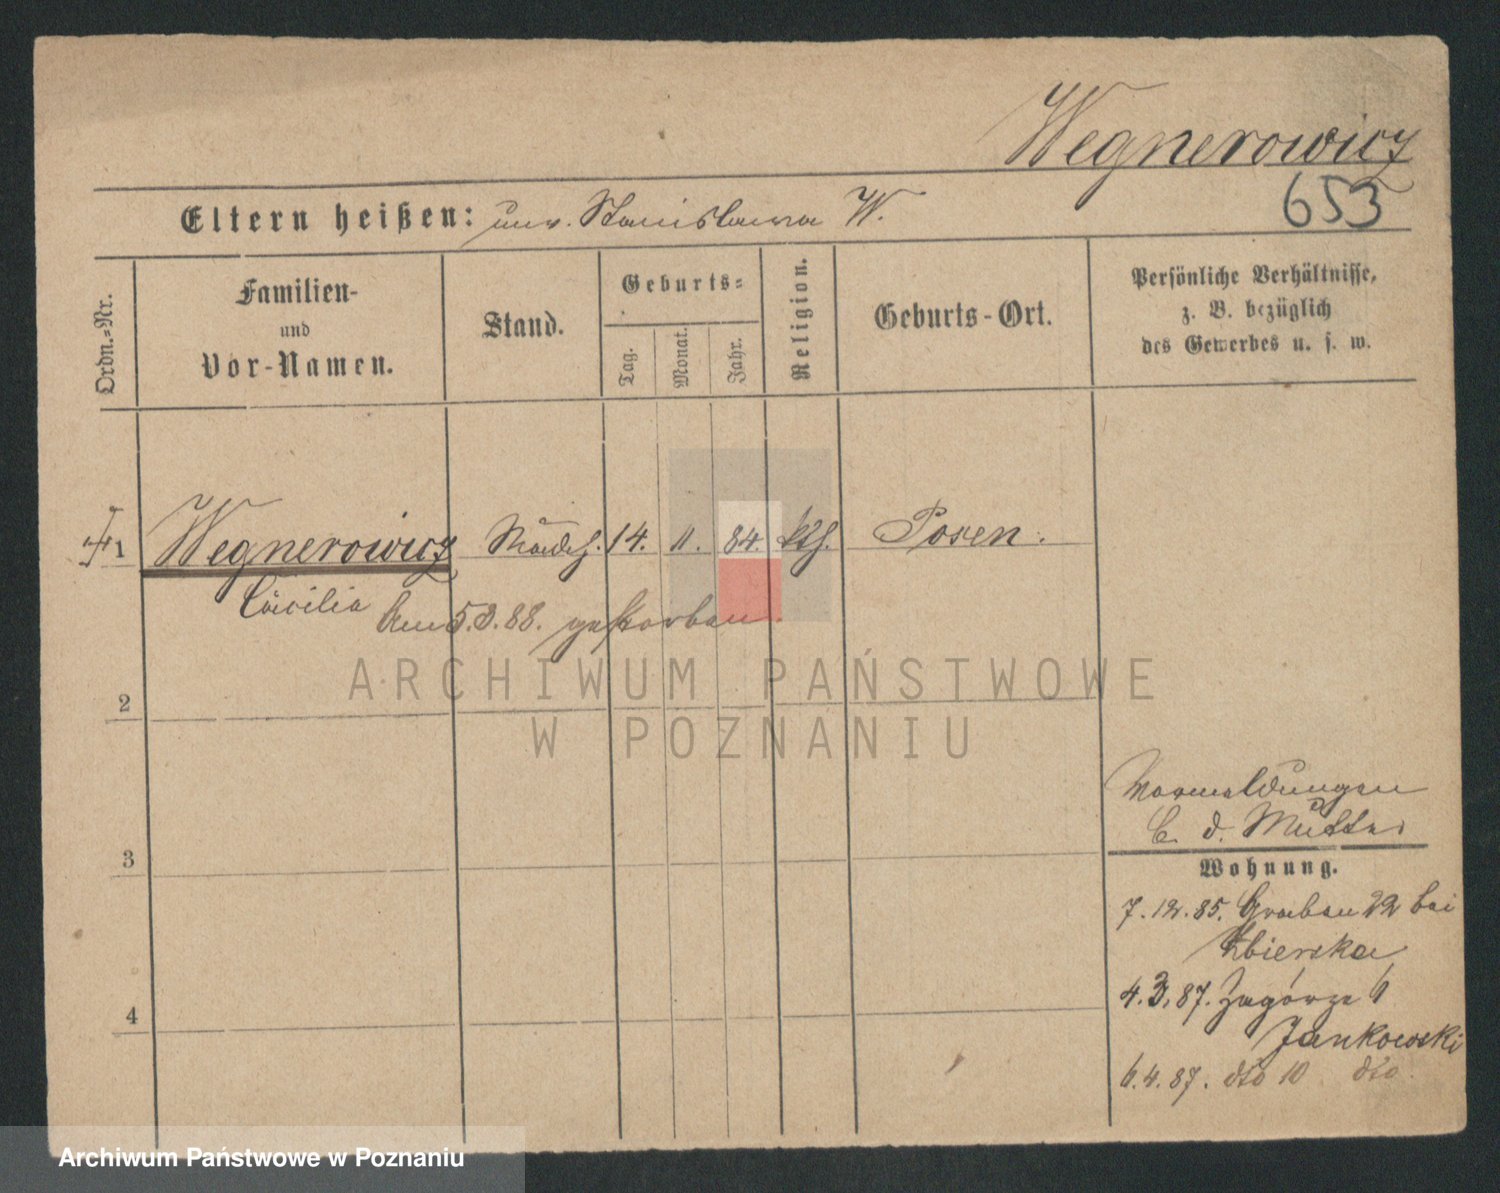 Wegnerowicz
653
Eltern heißen: unv. Stanislawa W.
Ordn.-Nr.
Familien-
und
Vor-Namen.
Stand.
Geburts-
Tag.
Monat.
Jahr.
Religion.
Geburts-Ort.
Persönliche Verhältnisse,
z. B. bezüglich
des Gewerbes u. s. w.
1 Wegnerowicz Mädch. 14. 11. 84. kth. Posen.
Cäcilia
Am 5.3.88. gestorben.
2
3
4
Vormeldungen
b. d. Mutter
Wohnung.
7.12.85. Graben 22 bei
Zbierska
4.3.87. Zagórze 6
Jankowski
6.4.87. dto 10 dto.
ARCHIWUM PAŃSTWOWE
W POZNANIU
Archiwum Państwowe w Poznaniu